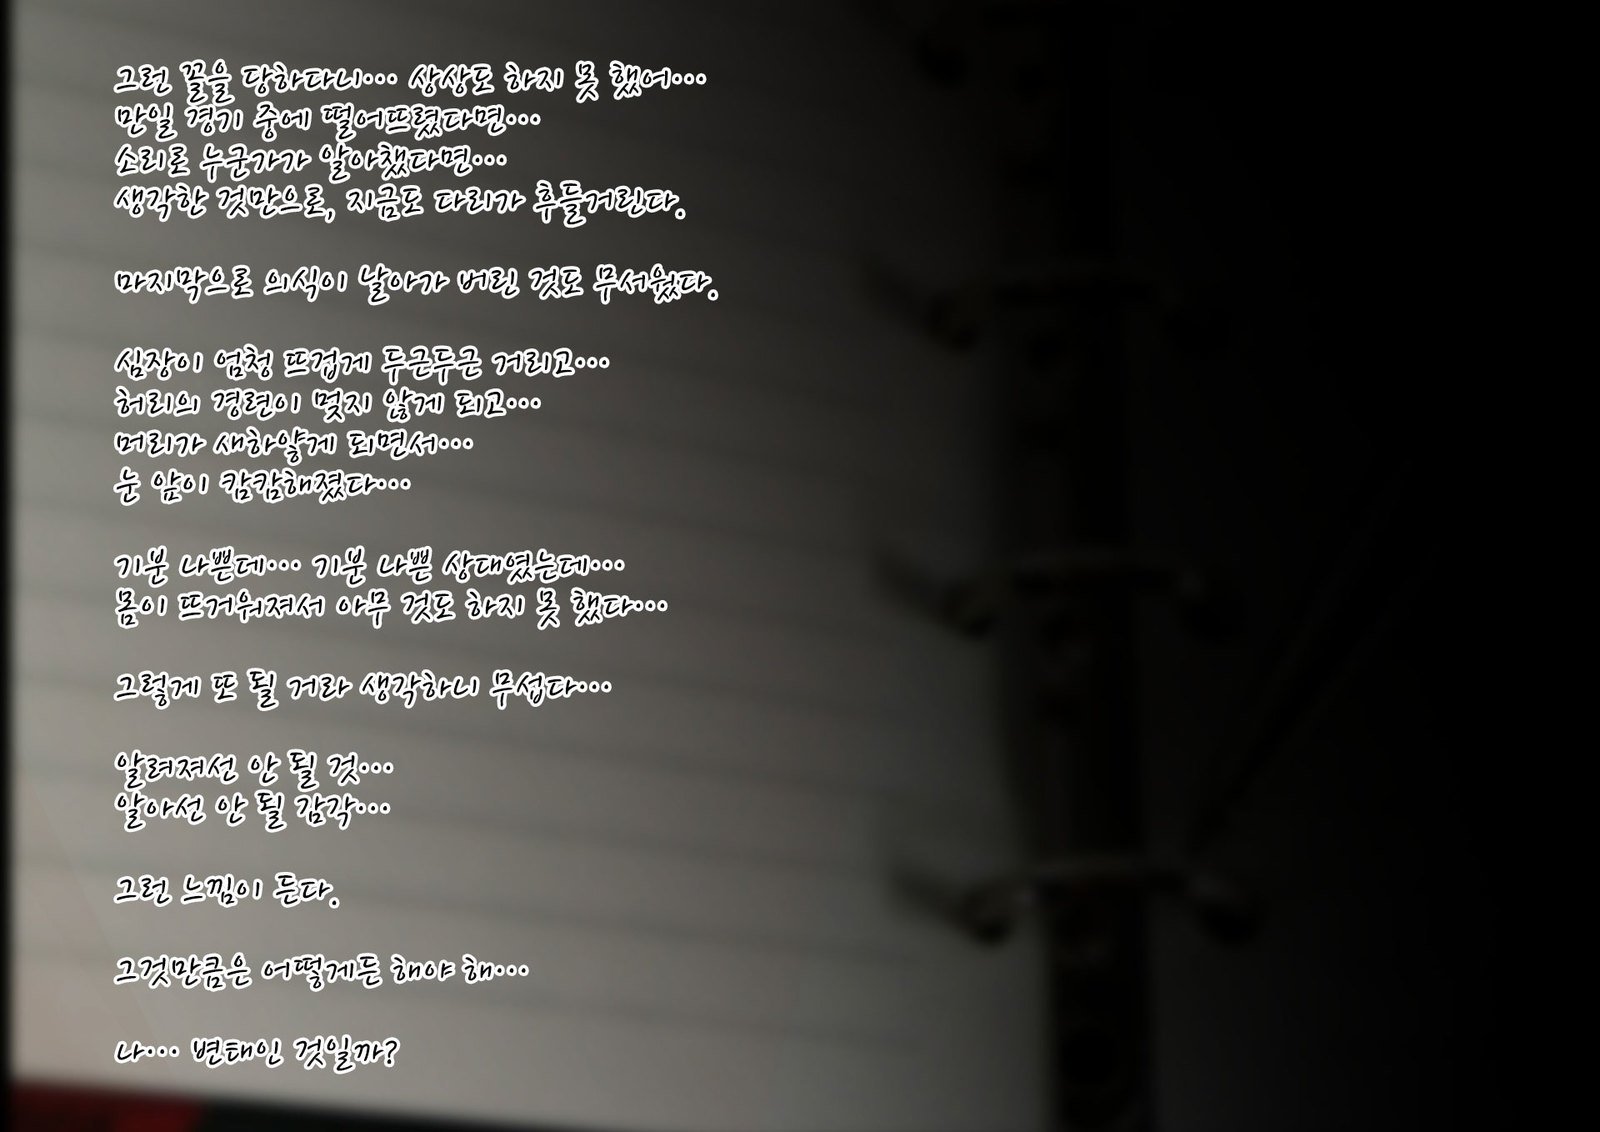 그런 꼴을 당하다니… 상상도 하지 못 했어…
만일 경기 중에 떨어뜨렸다면…
소리로 누군가가 알아챘다면…
생각한 것만으로, 지금도 다리가 후들거린다.
마지막으로 의식이 날아가 버린 것도 무서웠다.
심장이 엄청 뜨겁게 두근두근 거리고…
허리의 경련이 멎지 않게 되고…
머리가 새하얗게 되면서…
눈 앞이 캄캄해졌다…
기분 나쁜데… 기분 나쁜 상태였는데…
몸이 뜨거워져서 아무 것도 하지 못 했다…
그렇게 또 될 거라 생각하니 무섭다…
알려져선 안 될 것…
알아선 안 될 감각…
그런 느낌이 든다.
그것만큼은 어떻게든 해야 해…
나… 변태인 것일까?